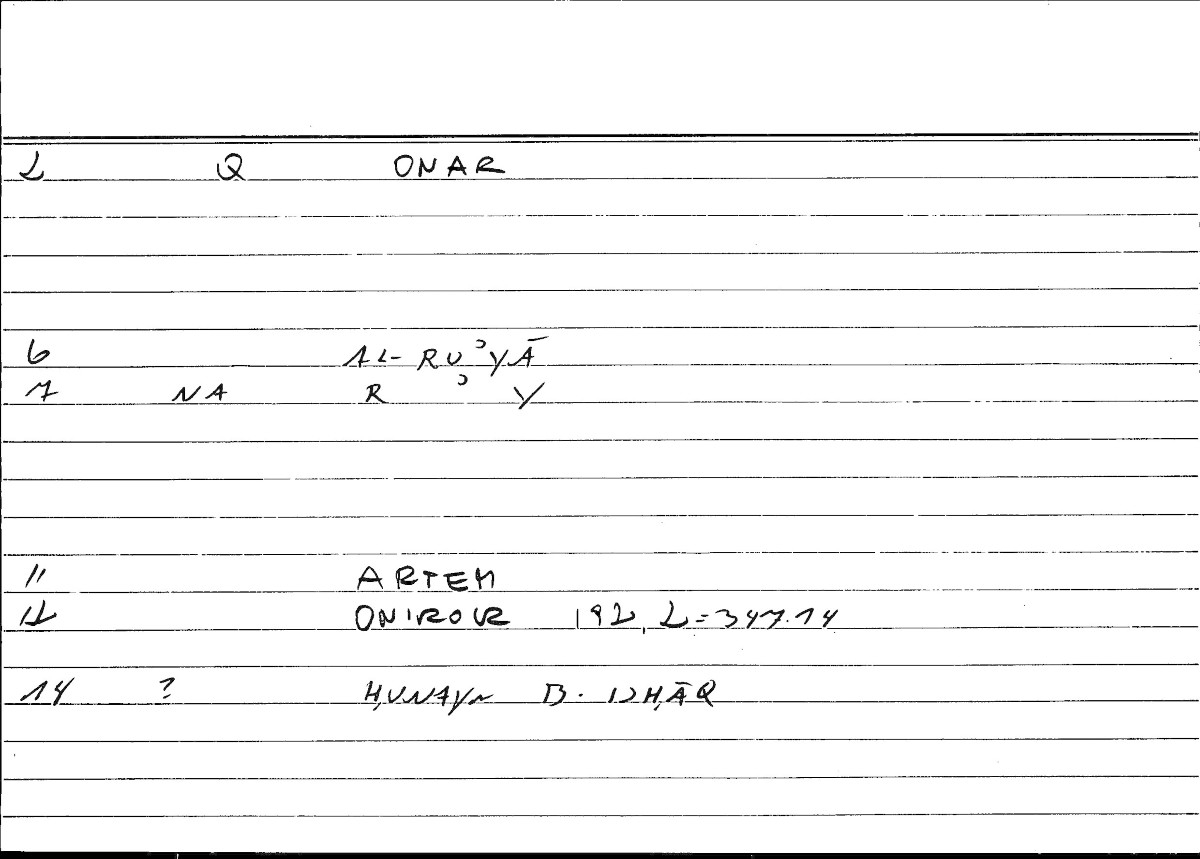 2 Q ONAR
6 AL-RUʾYĀ
7 NA R ʾ Y
11 ARTEM
12 ONIROCR 192, 2=347.14
14 ? ḤUNAYN B. ISḤĀQ